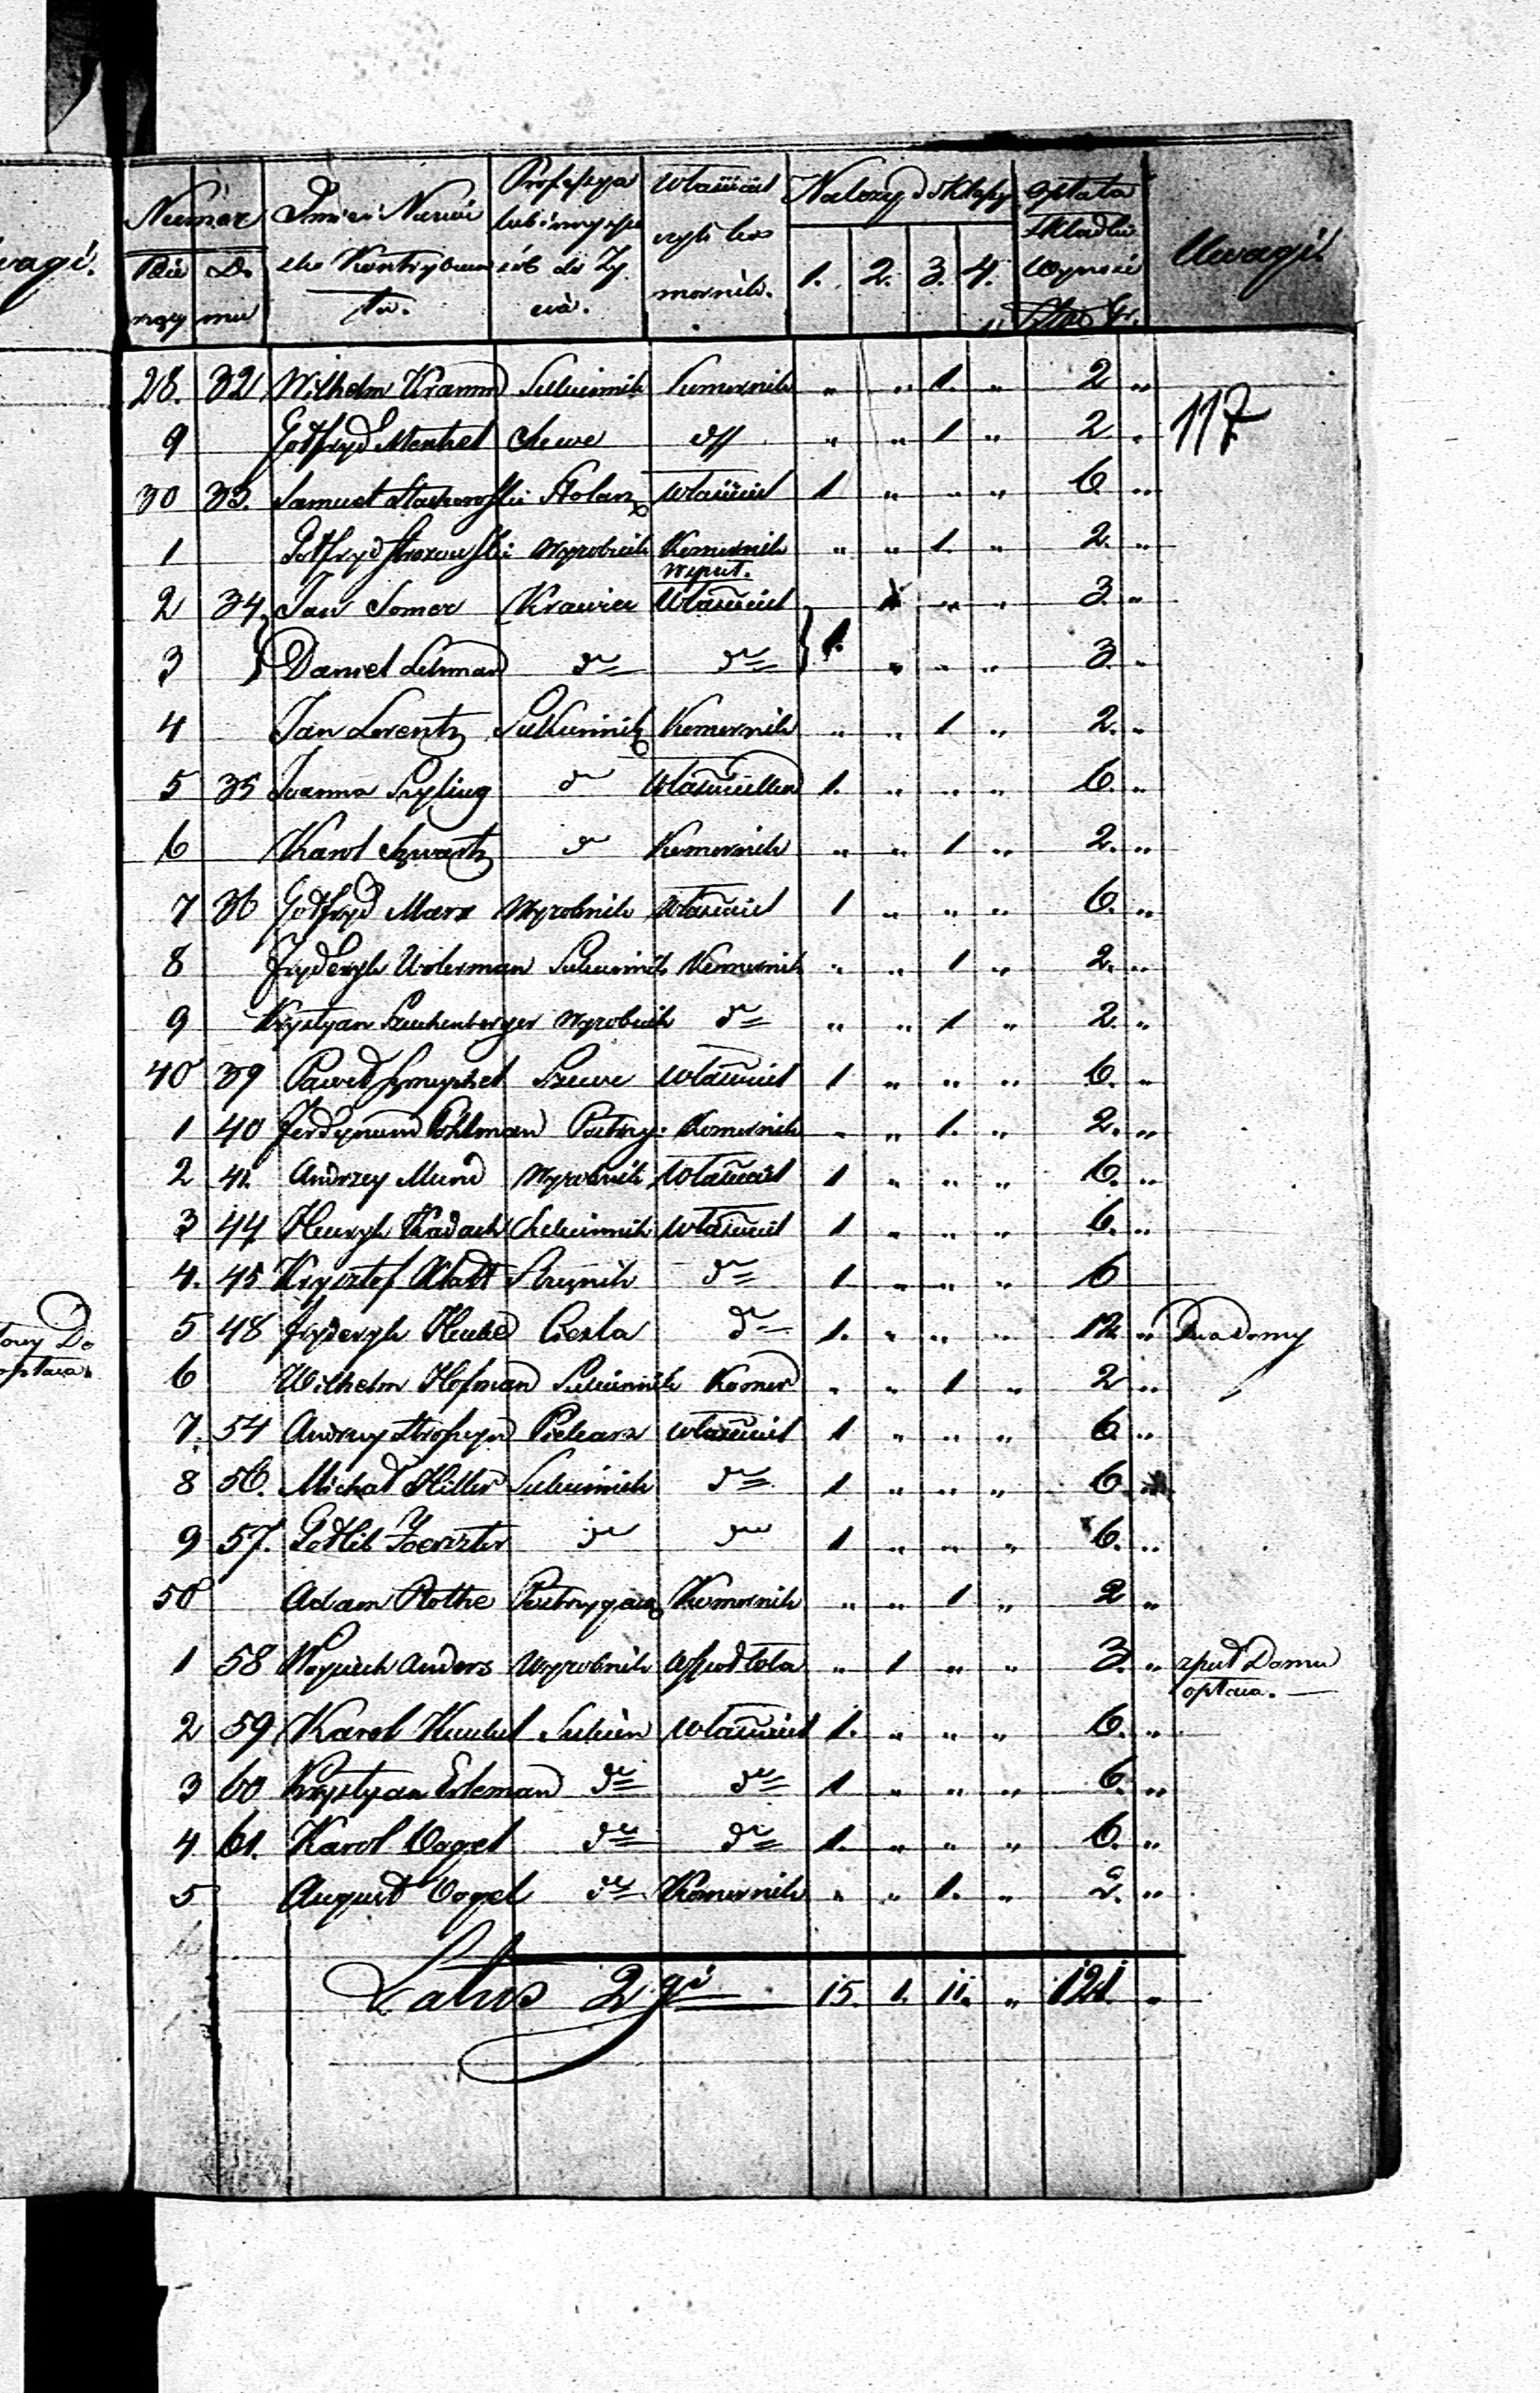 wagi.
Numer Imie i Nazwis Professya Właściciel Należy do klassy opłata Uwagi.
lub inny spo czyli ko składki
Bie Do sko Kontrybuen sób do Ży mornik. 1. 2. 3. 4. wynosi
żący mu ta. cia. Złp gr.
117
28. 32 Wilhelm Kramm Sukiennik Komornik " " 1. " 2 "
9 Gotfryd Menhel Szewc dtt " " 1 " 2. "
30 33. Samuel Stolarz Właściciel 1 " " " 6. "
1 Gotfryd Wyrobnik Komornik " " 1. " 2. "
wspuł.
2 34 Jan Somer Krawiec Właściciel " " 3. "
3 Daniel Lehman do do 1. " " " 3. "
4 Jan Lorentz Sukiennik Komornik " " 1 " 2. "
5 35 Joanna Szyling do Właścicielka 1. " " " 6. "
6 Karol Szwartz do Komornik " " 1 " 2. "
7 36 Gotfryd Marx Wyrobnik Właściciel 1 " " " 6. "
8 Frydrych Sukiennik Komornik " " 1 " 2. "
9 Krystyan Wyrobnik do " " 1 " 2. "
40 39 Paweł Szewc Właściciel 1 " " " 6. "
1 40 Ferdynand Pohlman Postrzy: Komornik " " 1. " 2. "
2 41. Andrzey Mund Wyrobnik Właściciel 1 " " " 6. "
3 44 Henryk Kadach Sukiennik Właściciel 1 " " " 6. "
4. 45 Krysztof Klatt do 1 " " " 6
5 48 Frydrych Cieśla do 1. " " " 12 " Dwa domy
6 Wilhelm Hofman Sukiennik Komor " " 1 " 2 "
7. 54 Andrzey Piekarz Właściciel 1 " " " 6 "
8 56. Michał Hiller Sukiennik do 1 " " " 6. "
9 57. Gotlib Foerszter do do 1 " " " 6. "
50 Adam Rothe Postrzygacz Komornik " " 1 " 2 "
1 58 Woyciech Anders Wyrobnik Wspoł Wła " 1 " " 3. " zpuł Domu
opłaca.
2 59 Karol Sukien Właściciel 1. " " " 6. "
3 60 Krystyan Erleman do do 1 " " " 6. "
4 61. Karol Vogel do do 1. " " " 6. "
5 August Vogel do Komornik " " 1. " 2. "
Latus 2gi 15. 1. 11. " 121 "